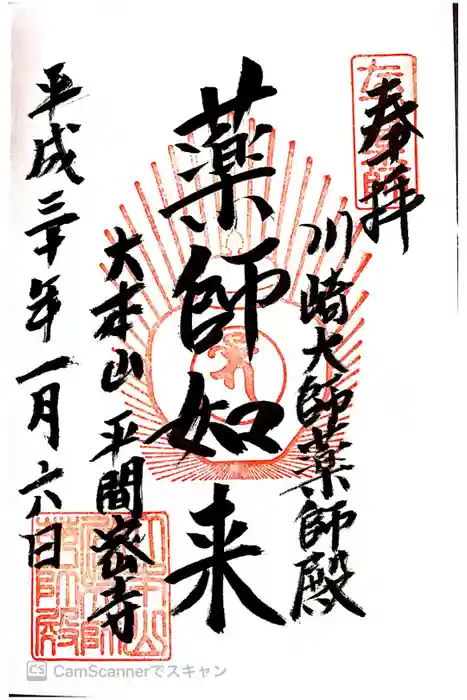 奉拝
川崎大師薬師殿
薬師如来
大本山 平間密寺
平成三十年一月六日
CS CamScannerでスキャン